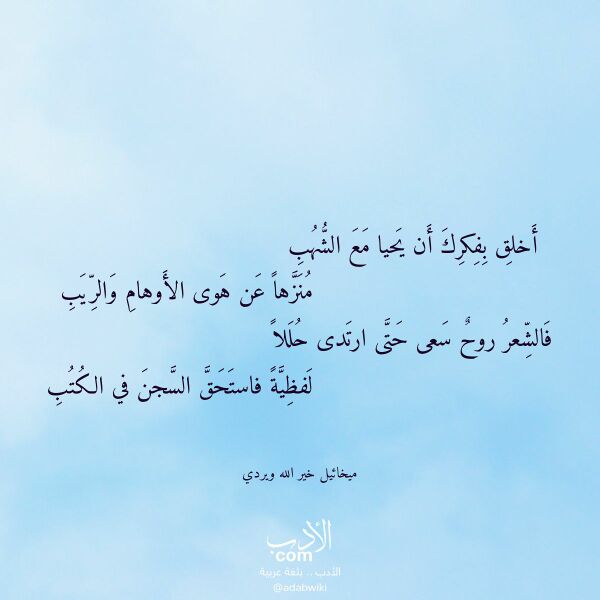 أَخلِق بِفِكرِكَ أَن يَحيا مَعَ الشُّهُبِ
مُنَزَّهاً عَن هَوى الأَوهامِ وَالرِّيَبِ
فَالشِّعرُ روحٌ سَعى حَتَّى ارتَدى حُلَلاً
لَفظِيَّةً فاستَحَقَّ السَّجنَ في الكُتُبِ
ميخائيل خير الله ويردي
الأدب
com
الأدب .. بلغة عربية
@adabwiki